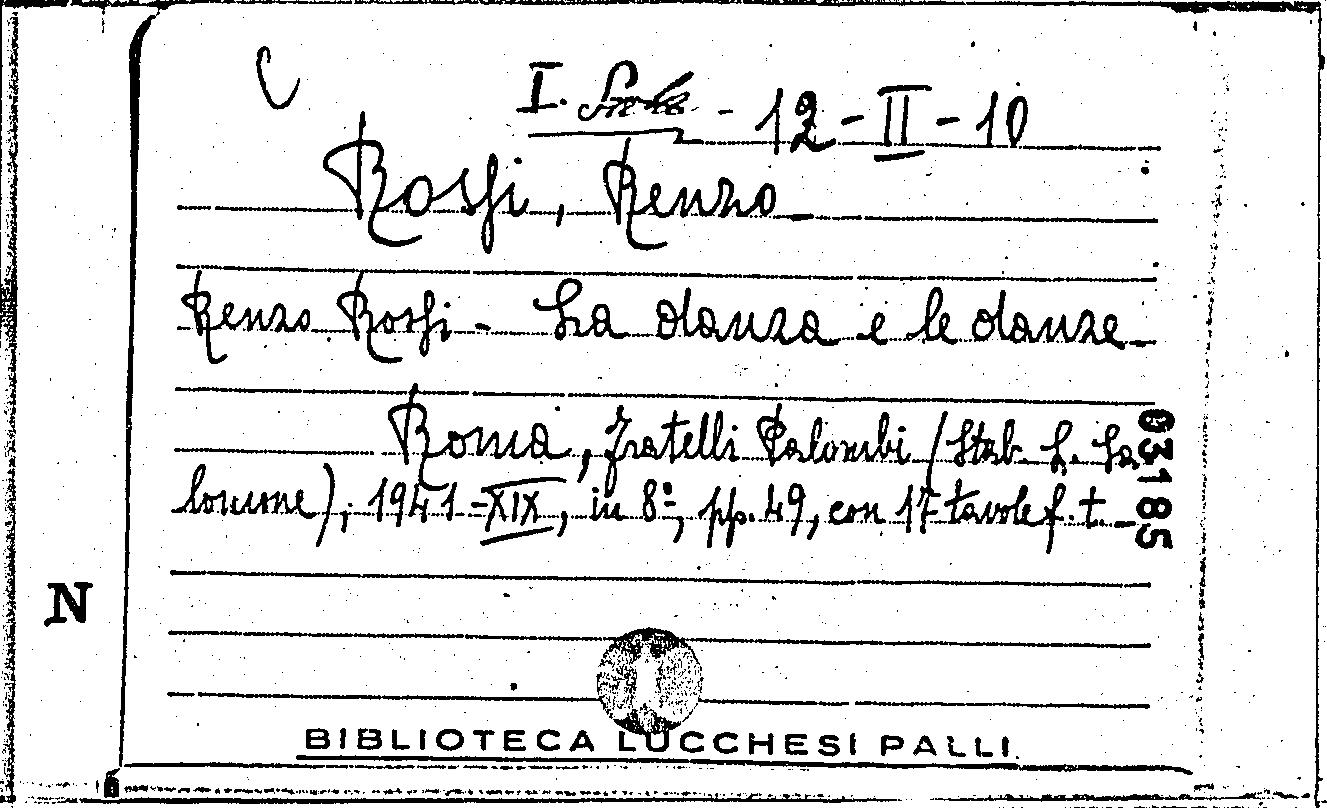 C
I. Sala - 12 - II - 10
Rossi, Renzo -
Renzo Rossi - La danza e le danze -
Roma, Fratelli Palombi (Stab. L. Sa
lomone), 1941-XIX, in 8º, pp. 49, con 17 tavole f. t. -
63185
N
BIBLIOTECA LUCCHESI PALLI